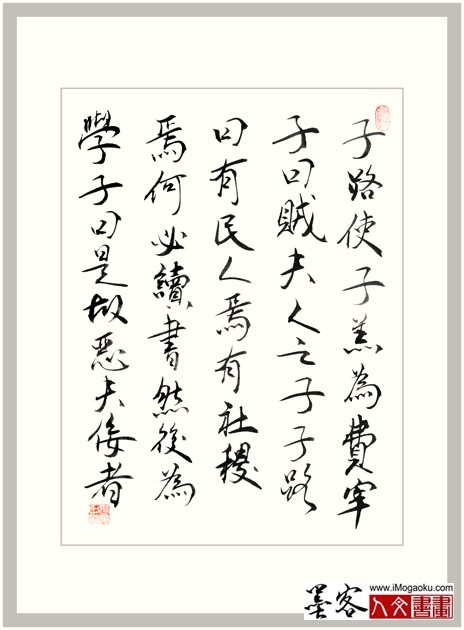 子路使子羔為費宰
子曰賊夫人之子子路
曰有民人焉有社稷
焉何必讀書然後為
學子曰是故惡夫佞者
墨客
www.iMogaoku.com
人文書畫